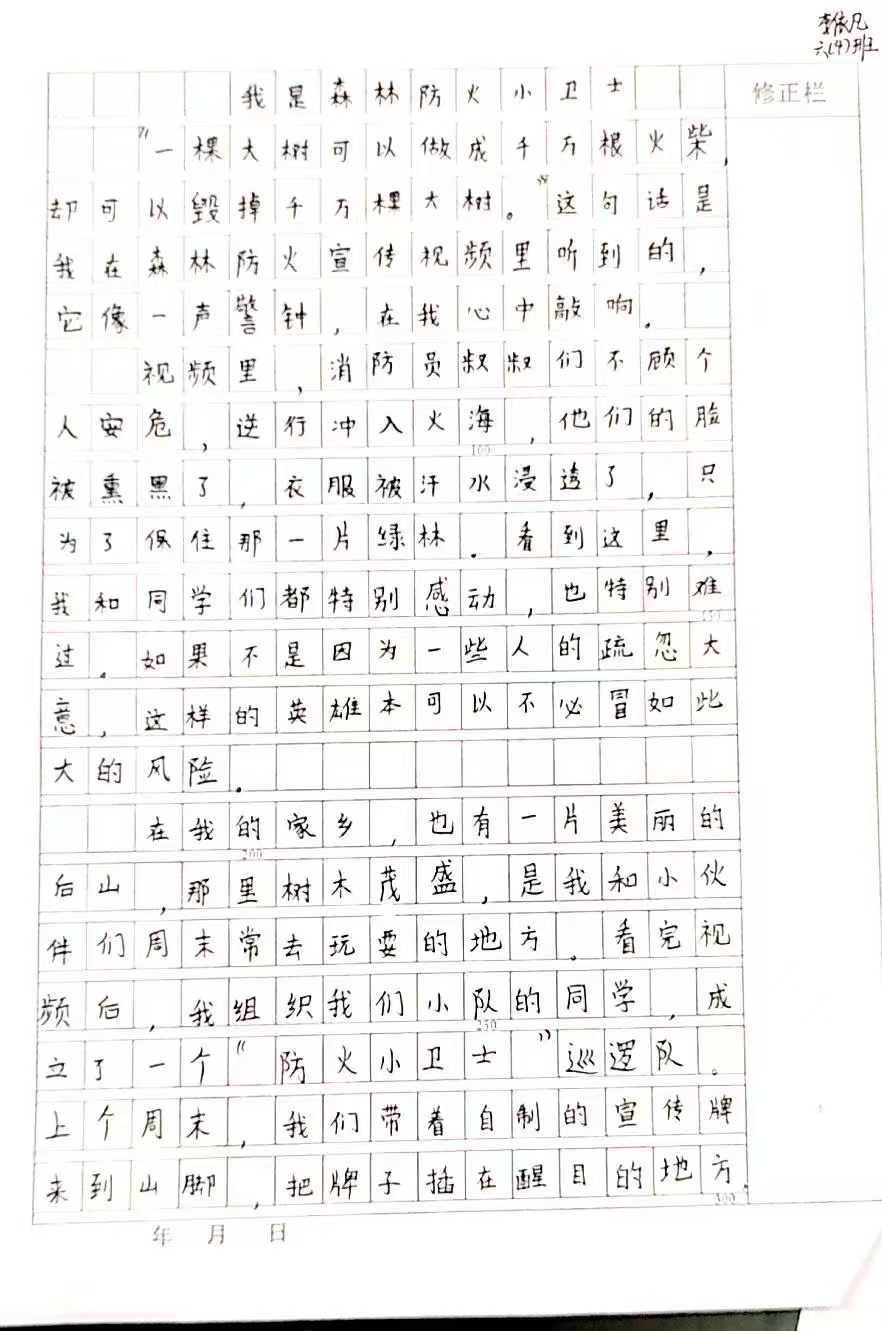 李依凡
六(4)班
我是森林防火小卫士
修正栏
“一棵大树可以做成千万根火柴，
却可以毁掉千万棵大树。”这句话是
我在森林防火宣传视频里听到的，
它像一声警钟，在我心中敲响。
视频里，消防员叔叔们不顾个
人安危，逆行冲入火海，他们的脸
100
被熏黑了，衣服被汗水浸透了，只
为了保住那一片绿林。看到这里，
我和同学们都特别感动，也特别难
150
过。如果不是因为一些人的疏忽大
意，这样的英雄本可以不必冒如此
大的风险。
在我的家乡，也有一片美丽的
200
后山，那里树木茂盛，是我和小伙
伴们周末常去玩耍的地方。看完视
频后，我组织我们小队的同学，成
250
立了一个“防火小卫士”巡逻队。
上个周末，我们带着自制的宣传牌
来到山脚，把牌子插在醒目的地方，
300
年 月 日